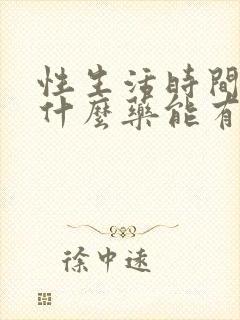 性生活時間
什麼藥能有
徐中遠